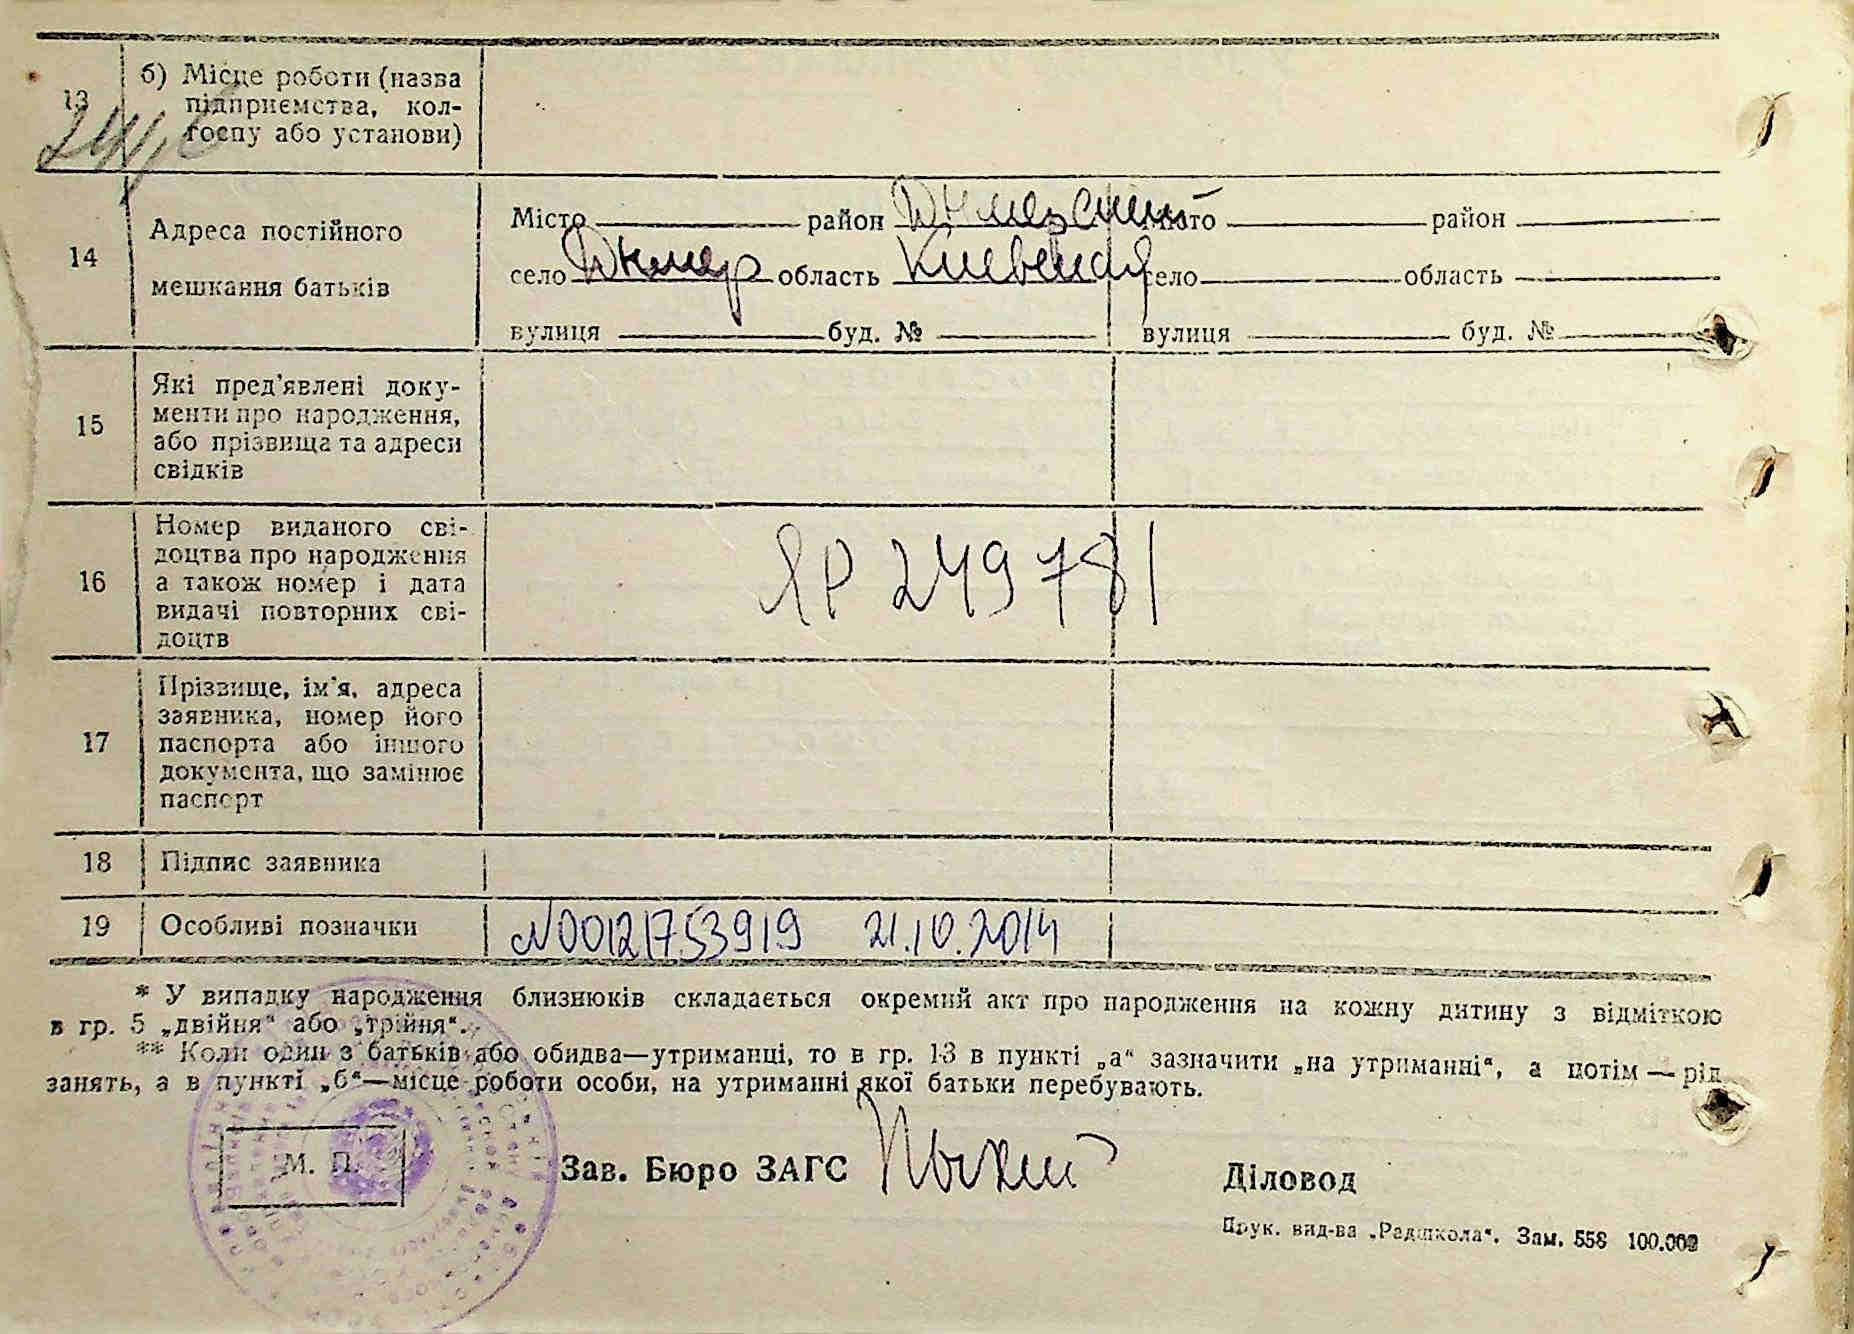 13 б) Місце роботи (назва
підприємства, кол-
госпу або установи)
14 Адреса постійного
мешкання батьків
Місто район Дымерский Місто район
село Дымер область Киевская село область
вулиця буд. № вулиця буд. №
15 Які пред'явлені доку-
менти про народження,
або прізвища та адреси
свідків
16 Номер виданого сві-
доцтва про народження
а також номер і дата
видачі повторних сві-
доцтв
ЯР 249781
17 Прізвище, ім'я, адреса
заявника, номер його
паспорта або іншого
документа, що замінює
паспорт
18 Підпис заявника
19 Особливі позначки N00121753919 21.10.2014
* У випадку народження близнюків складається окремий акт про народження на кожну дитину з відміткою
в гр. 5 „двійня“ або „трійня“.
** Коли один з батьків або обидва—утриманці, то в гр. 13 в пункті „а“ зазначити „на утриманні“, а потім — рід
занять, а в пункті „б“—місце роботи особи, на утриманні якої батьки перебувають.
М. П. Зав. Бюро ЗАГС Діловод
Друк. вид-ва „Радшкола“. Зам. 558 100.000